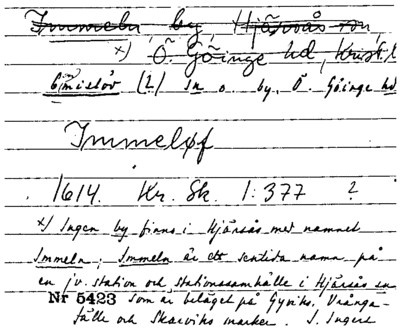 Immeln, by, Hjärsås sn,
x) Ö. Göinge hd, Krist. l
Emislöv (2) sn o. by, Ö. Göinge hd
Immeløf
1614. Kr. Sk. 1:377 ?
x) Ingen by finns i Hjärsås med namnet
Immeln; Immeln är ett sentida namn på
en jv. station och stationssamhälle i Hjärsås sn
Nr 5423 som är beläget på Gyviks, Vrånga-
fälle och Skärviks marker. S. Ingers